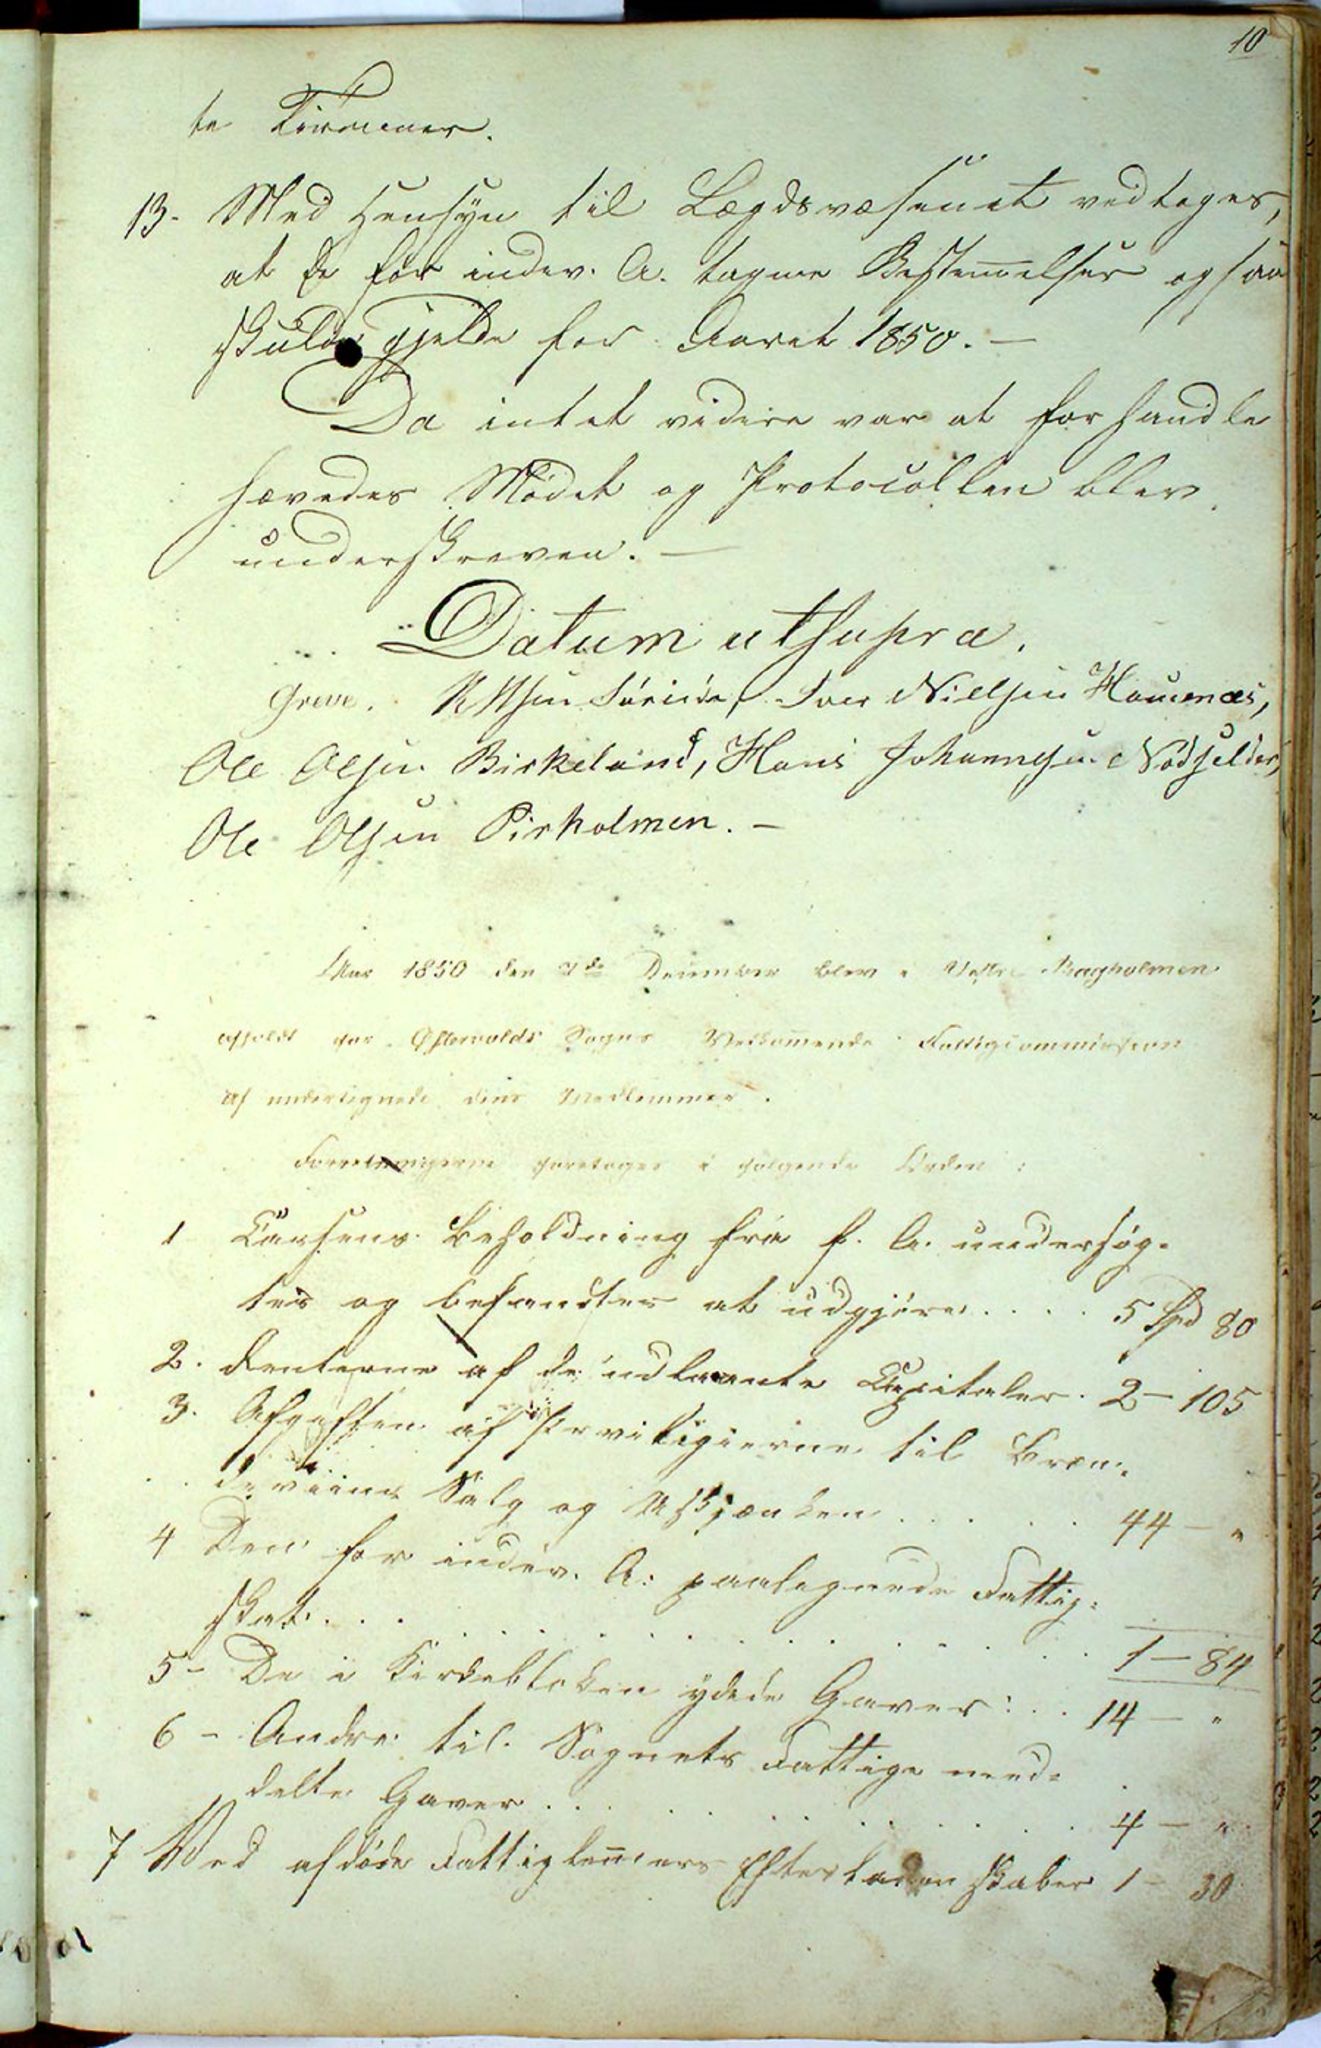 10
te Tømmer.
13. Med Hensyn til Lægdsvæsenet vedtoges,
at de for indev. A. tagne Bestemelser ogsaa
skulde gjelde for Aaret 1850. —
Da intet videre var at forhandle
hævedes Mødet og Protocollen blev
underskreven. —
Datum utsupra.
Greve. Iver Nielsen Hammernæs,
Ole Olsen Birkeland, Hans Johannesen Nødseldor,
Ole Olsen Pirholmen. —
Aar 1850 den 7de December blev i Vestre Bagholmen
afholdt for Østervolds Sogns Vedkommende Fattigcommission
af undertegnede dens Medlemmer.
Forretningerne foretoges i følgende Orden:
1 Cassens Beholdning fra f. A. undersøg-
tes og befandtes at udgjøre . . . . 5 Spd 80
2. Renterne af de udlaante Capitaler. 2 — 105
3. Afgiften af Priviligierne til Bræn-
deviins Salg og Udskjænken . . . . . 44 — "
4 Den for indev. A. paalignede Fattig-
skat . . . . . . . . . . . . . 1 — 84
5 — De i Kirkeblokken ydede Gaver: . . 14 — "
6 — Andre til Sognets Fattige med-
delte Gaver . . . . . . . . . . . 4 — "
7 Ved afdøde Fattiglemmers Efterladenskaber 1 — 30